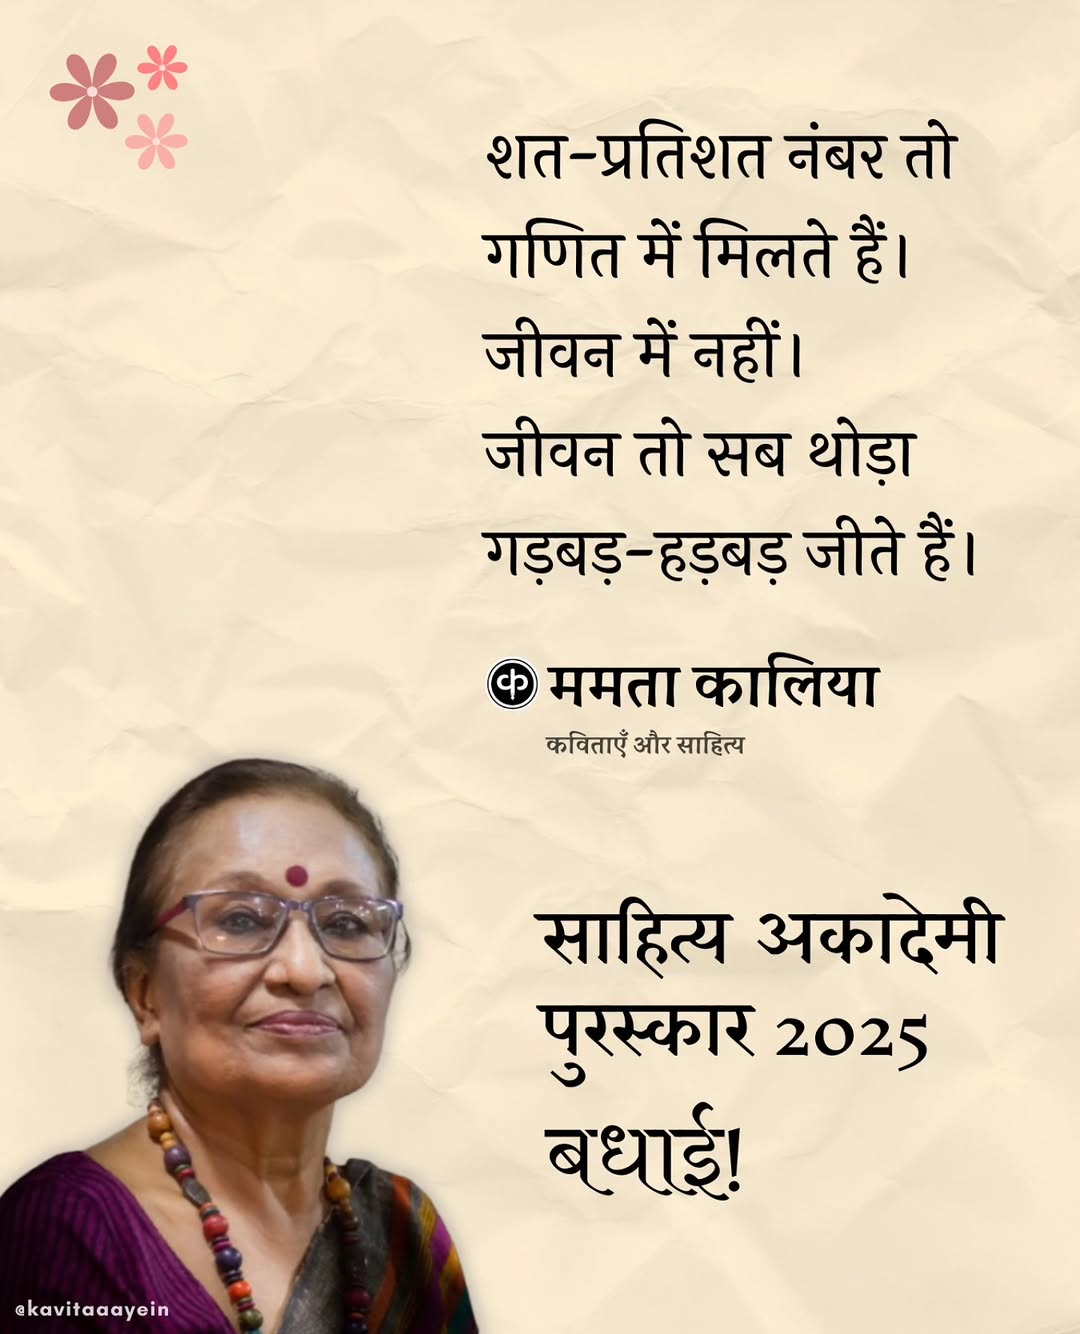 शत-प्रतिशत नंबर तो
गणित में मिलते हैं।
जीवन में नहीं।
जीवन तो सब थोड़ा
गड़बड़-हड़बड़ जीते हैं।
क ममता कालिया
कविताएँ और साहित्य
साहित्य अकादेमी
पुरस्कार 2025
बधाई!
@kavitaaayein